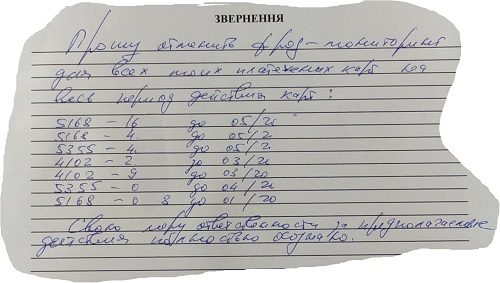 ЗВЕРНЕННЯ
Прошу отменить фрод-мониторинг
для всех моих платежных карт на
весь период действия карт:
5168 - 16 до 05/2
5168 - 4 до 05/2
5355 - 4 до 05/2
4102 - 2 до 03/2
4102 - 9 до 03/20
5355 - 0 до 04/2
5168 - 0 8 до 01/20
Свою меру ответственности за предполагаемые
действия полностью осознаю.